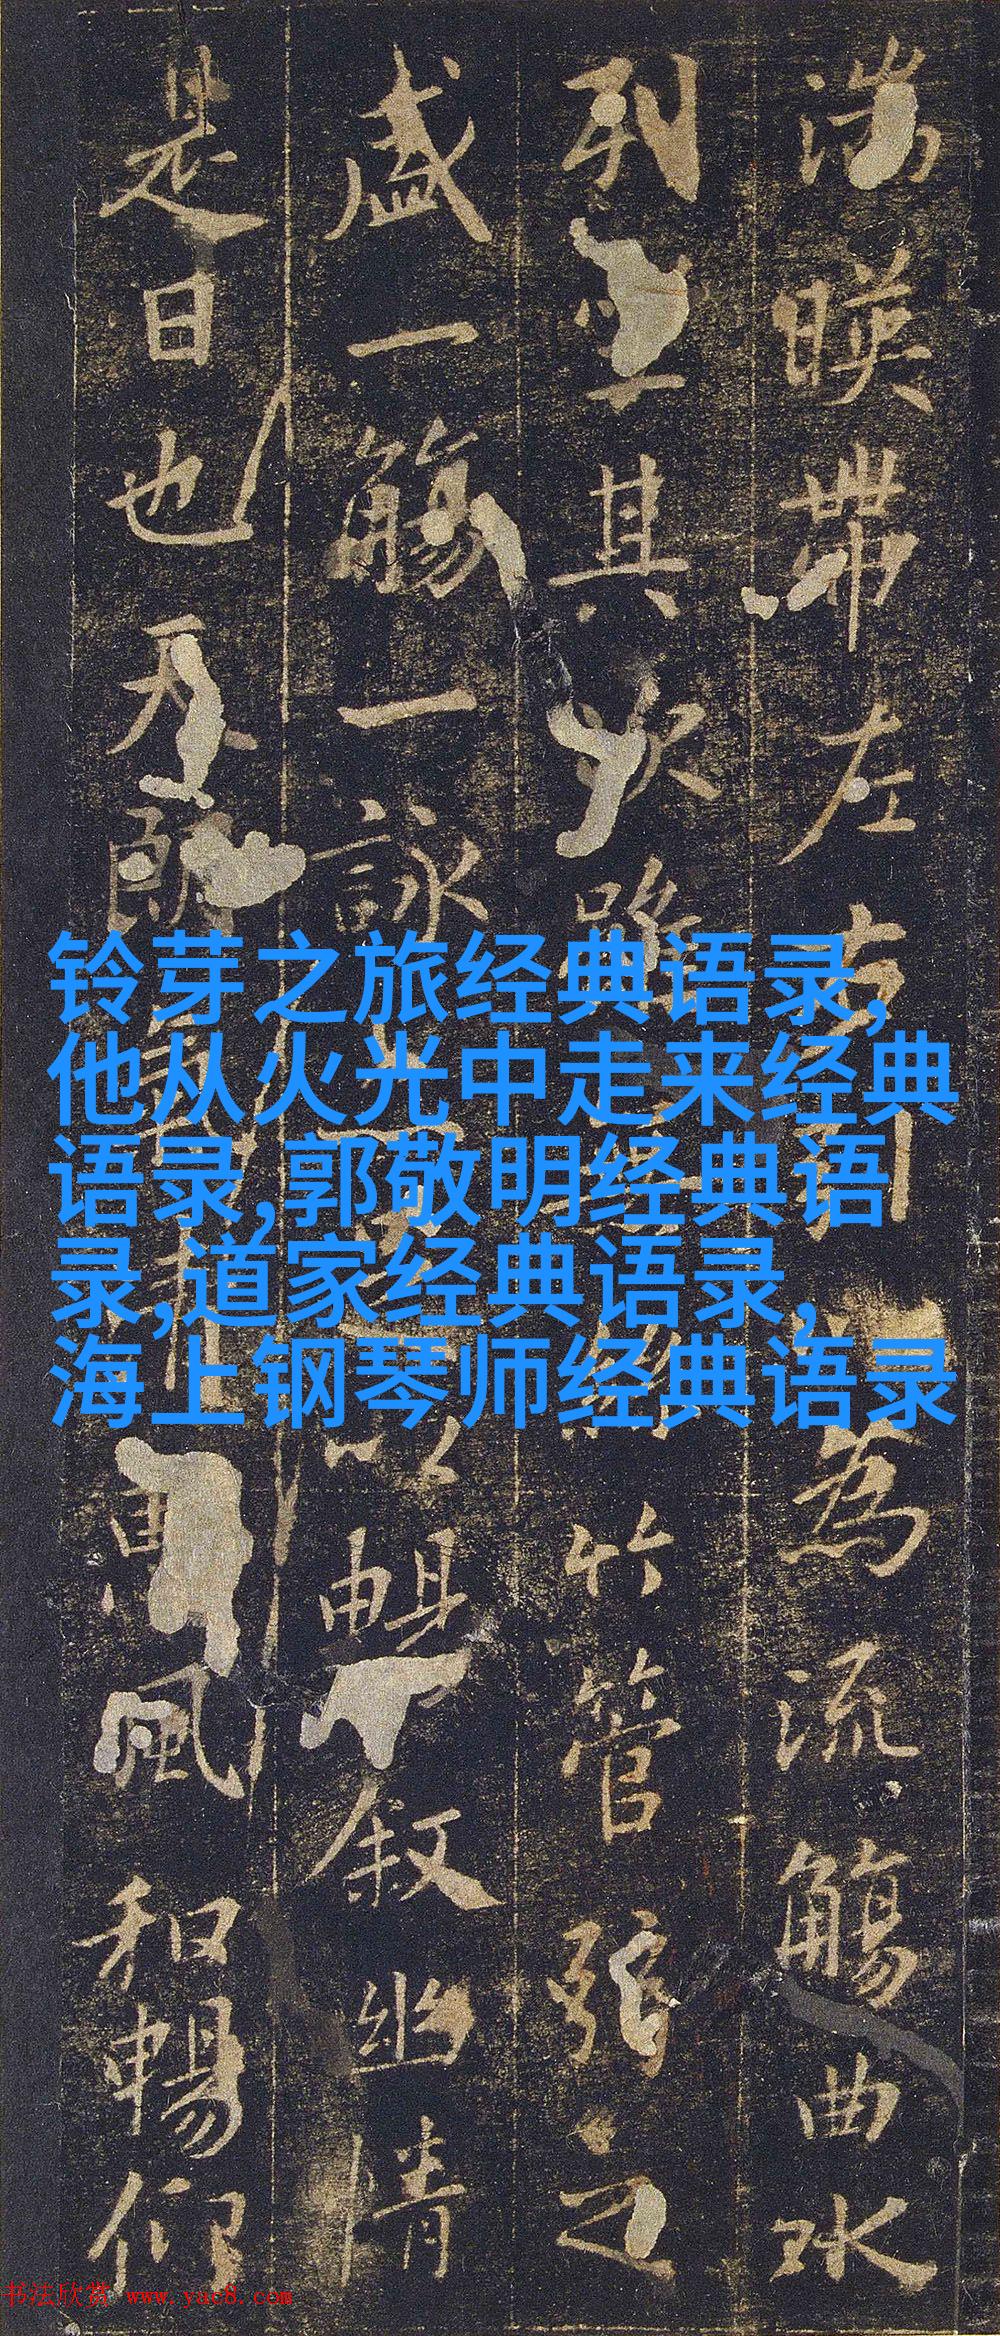 湍暎帶左右引以為流觴曲水
列坐其次雖無絲竹管弦之
盛一觴一詠亦足以暢敘幽情
是日也天朗氣清惠風和暢仰
铃芽之旅经典语录,
他从火光中走来经典
语录,郭敬明经典语
录,道家经典语录,
海上钢琴师经典语录
书法欣赏 www.yac8.com